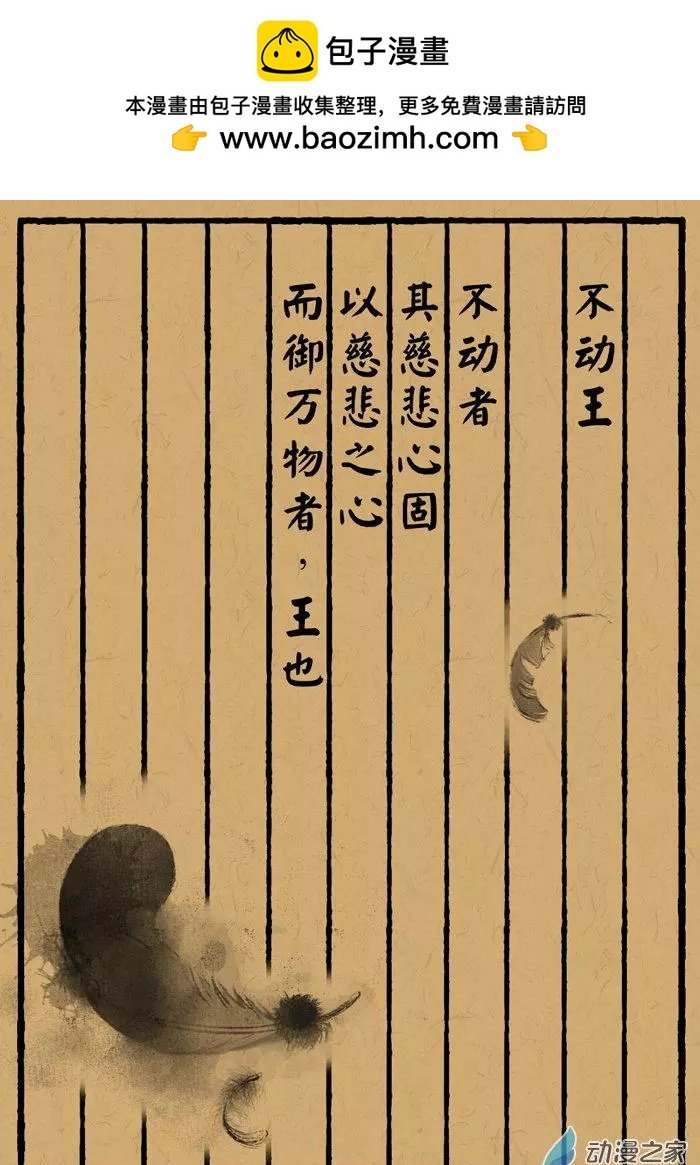 包子漫畫
本漫畫由包子漫畫收集整理，更多免費漫畫請訪問
👉 www.baozimh.com 👈
不动王
不动者
其慈悲心固
以慈悲之心
而御万物者，王也
动漫之家